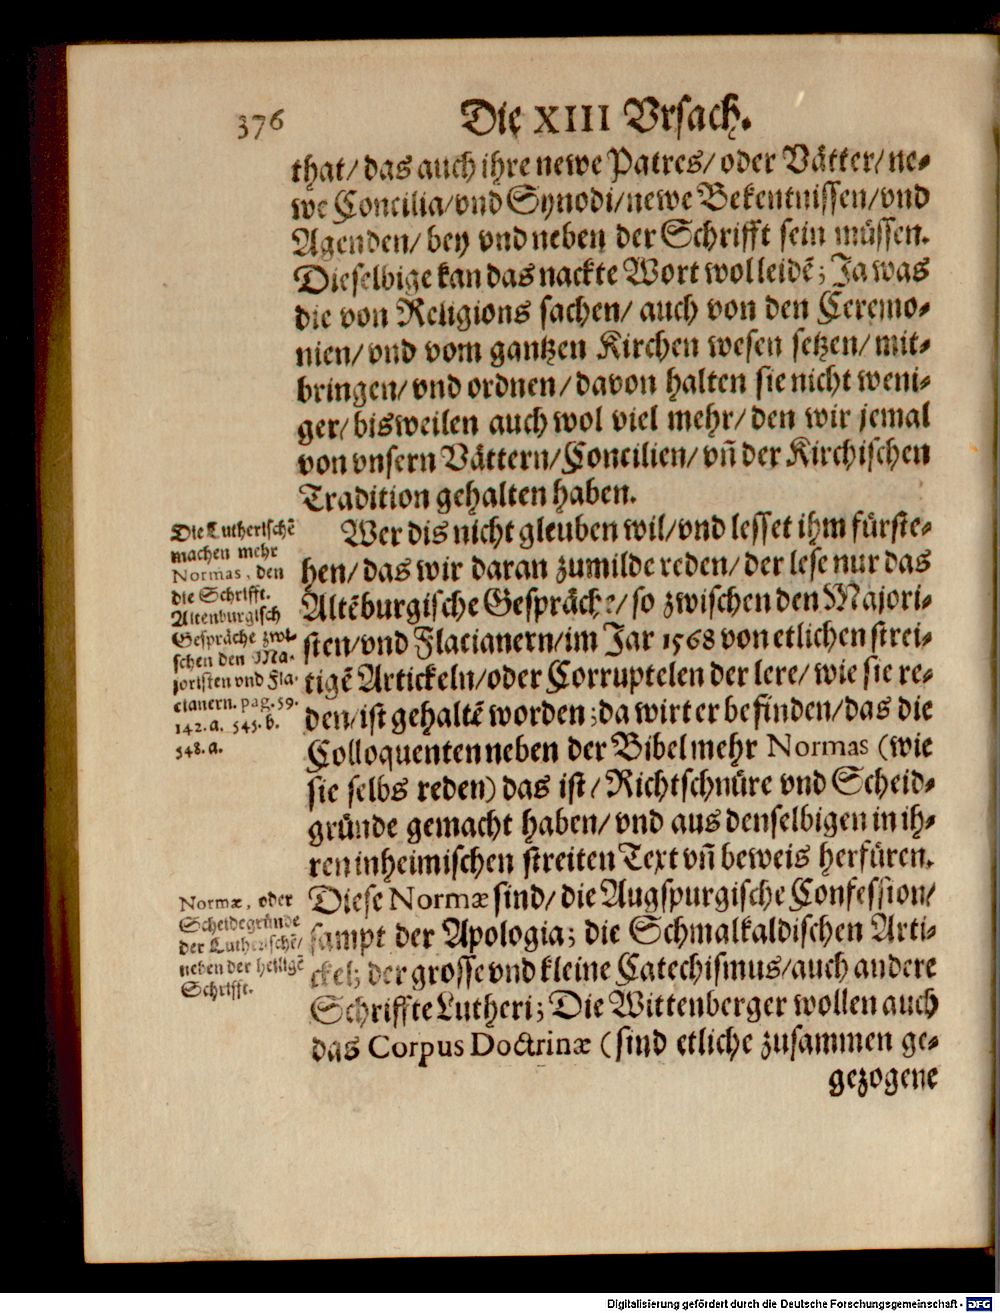 376
Die XIII Vrsach.
that/ das auch ihre newe Patres/ oder Vätter/ ne⸗
we Concilia/ vnd Synodi/ newe Bekentnissen/ vnd
Agenden/ bey vnd neben der Schrifft sein müssen.
Dieselbige kan das nackte Wort wol leidẽ; Ja was
die von Religions sachen/ auch von den Ceremo⸗
nien/ vnd vom gantzen Kirchen wesen setzen/ mit⸗
bringen/ vnd ordnen/ davon halten sie nicht weni⸗
ger/ bisweilen auch wol viel mehr/ den wir jemal
von vnsern Vättern/ Concilien/ vñ der Kirchischen
Tradition gehalten haben.
Wer dis nicht gleuben wil/ vnd lesset ihm fürste⸗
hen/ das wir daran zumilde reden/ der lese nur das
Altẽburgische Gespräche/ so zwischen den Majori⸗
sten/ vnd Flacianern/ im Jar 1568 von etlichen strei⸗
tigẽ Artickeln/ oder Corruptelen der lere/ wie sie re⸗
den/ ist gehaltẽ worden; da wirt er befinden/ das die
Colloquenten neben der Bibel mehr Normas (wie
sie selbs reden) das ist/ Richtschnüre vnd Scheid⸗
gründe gemacht haben/ vnd aus denselbigen in ih⸗
ren inheimischen streiten Text vñ beweis herfüren.
Diese Normæ sind/ die Augspurgische Confession/
sampt der Apologia; die Schmalkaldischen Arti⸗
ckel; der grosse vnd kleine Catechismus/ auch andere
Schriffte Lutheri; Die Wittenberger wollen auch
das Corpus Doctrinæ (sind etliche zusammen ge⸗
gezogene
Die Lutherischẽ
machen mehr
Normas, den
die Schrifft.
Altenburgisch
Gespräche zwi⸗
schen den Ma⸗
joristen vnd Fla⸗
cianern. pag. 59.
142. a. 545. b.
548. a.
Normæ, oder
Scheidegründe
der Lutherischẽ/
neben der heiligẽ
Schrifft.
Digitalisierung gefördert durch die Deutsche Forschungsgemeinschaft - DFG